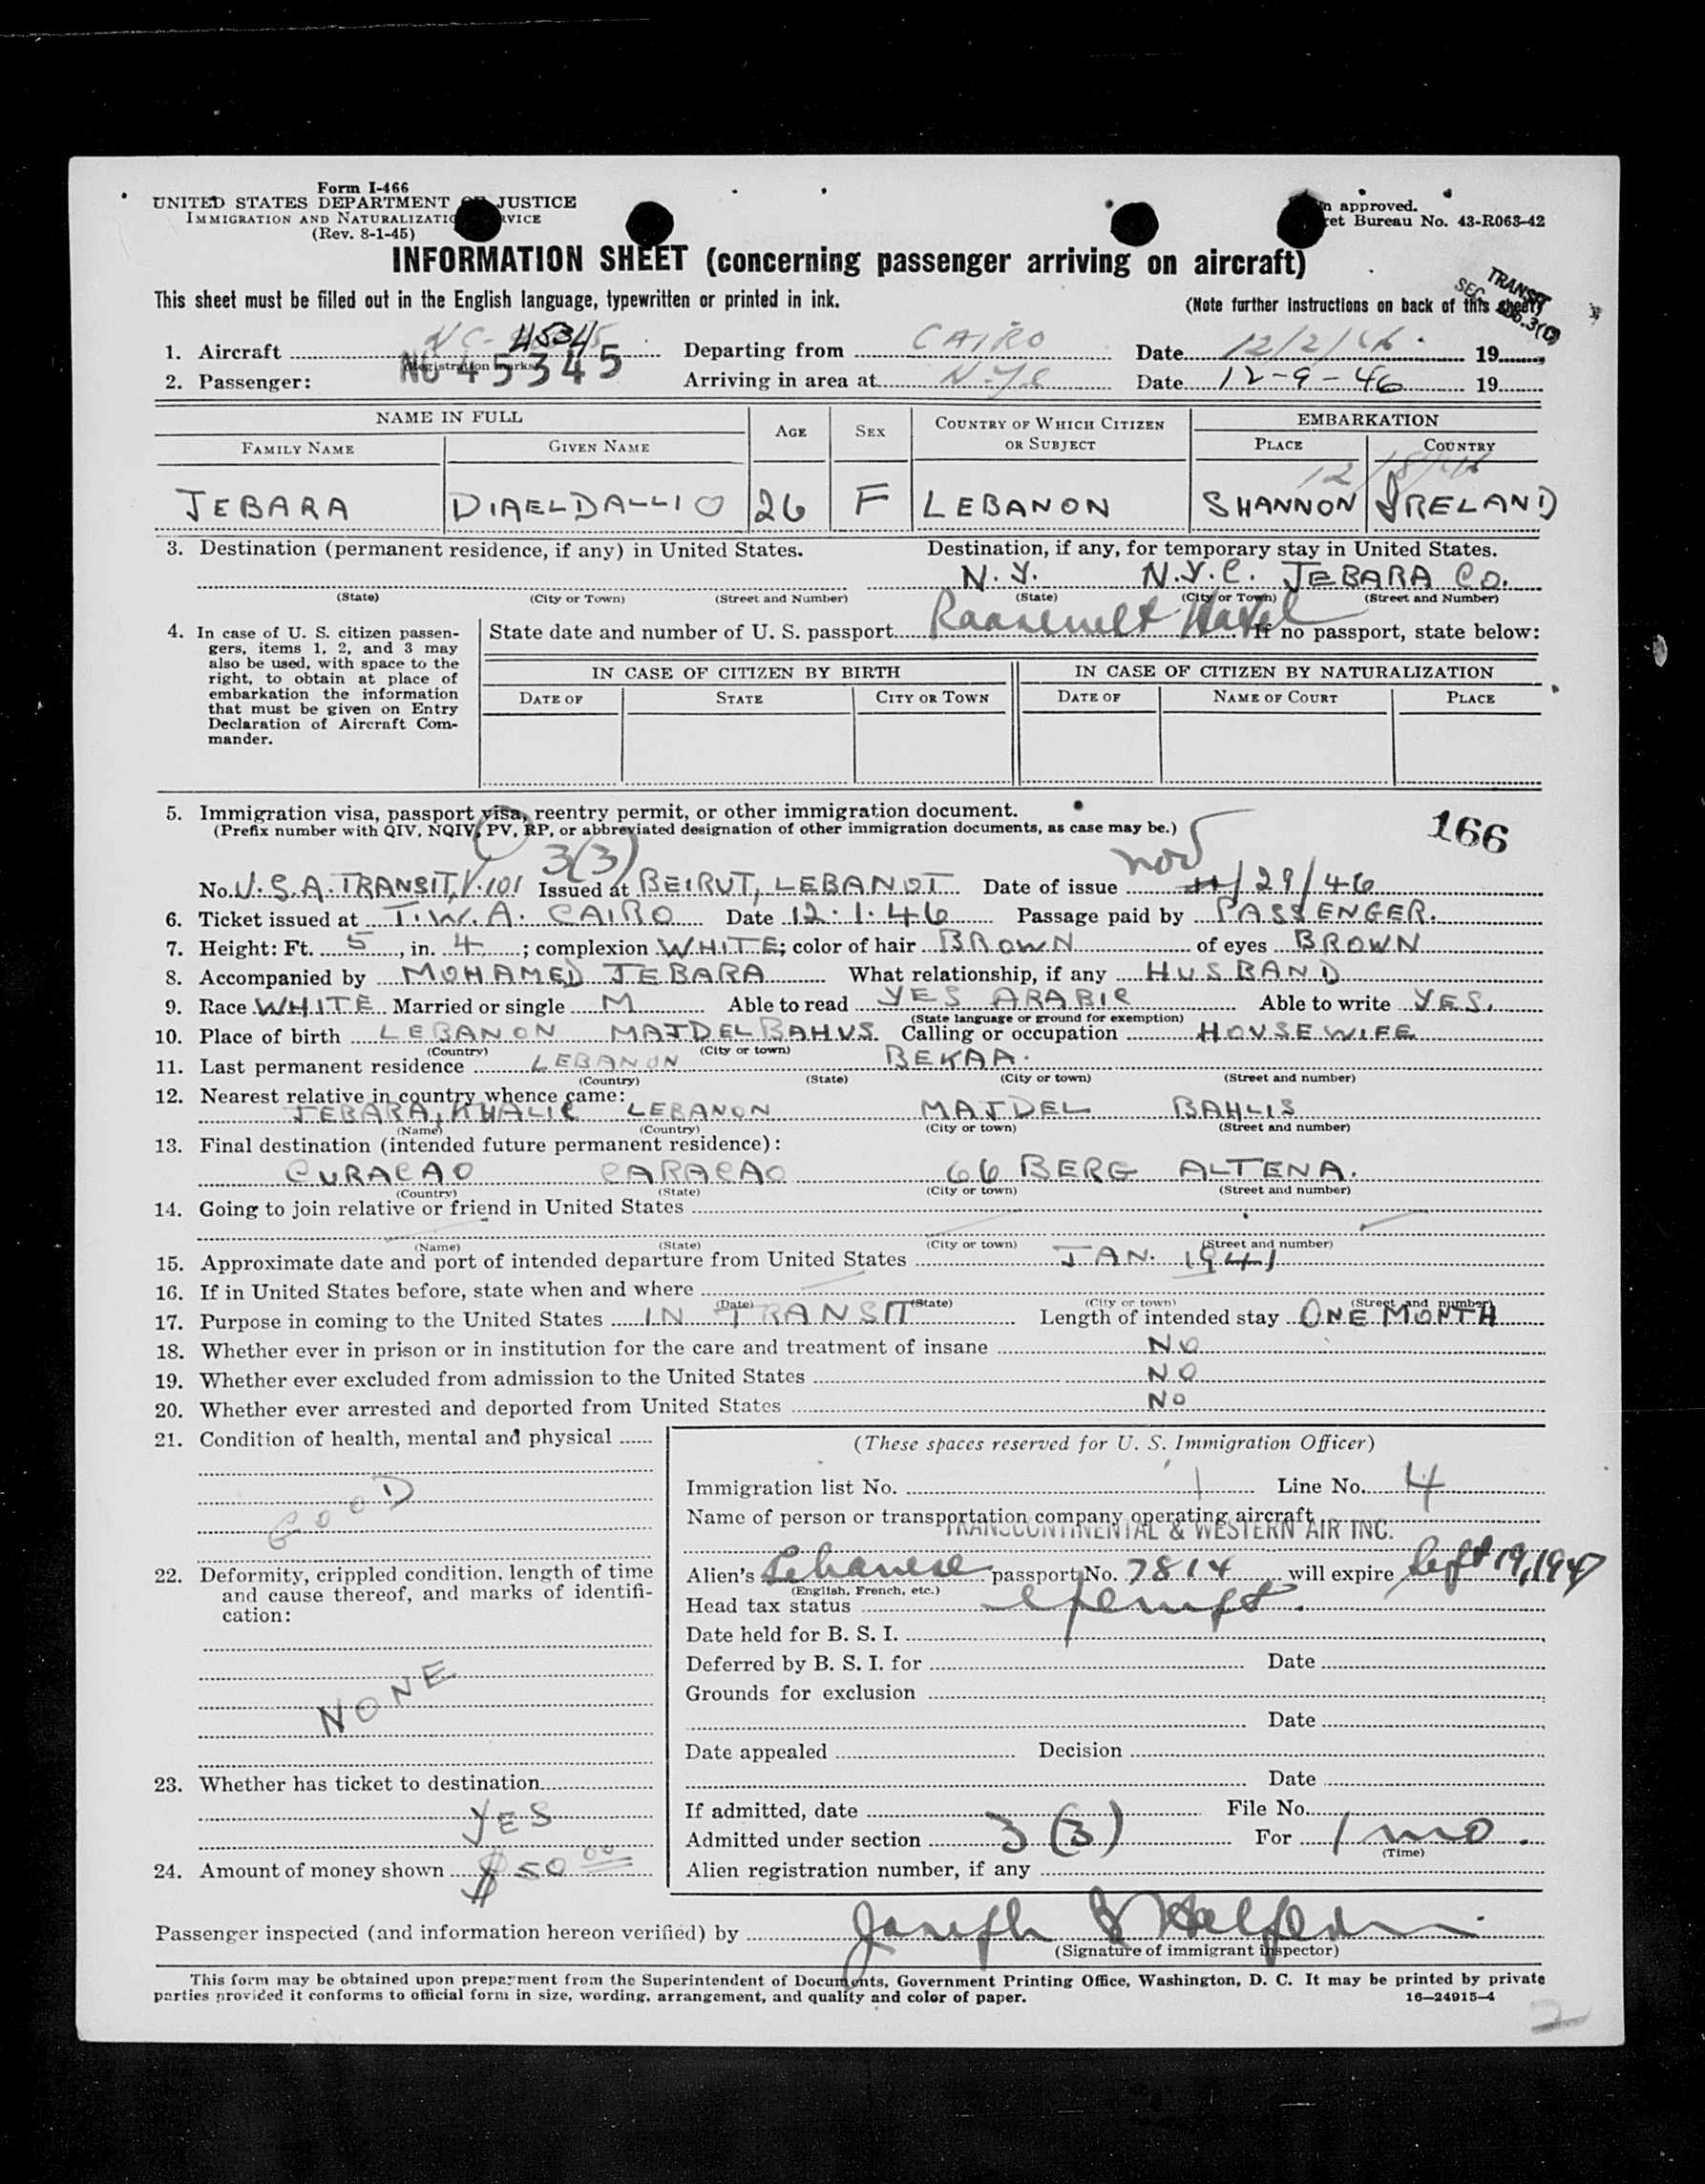 Form I-466
UNITED STATES DEPARTMENT JUSTICE
IMMIGRATION AND
(Rev. 8-1-45)
approved.
Bureau No. 43-R063-42
INFORMATION SHEET (concerning passenger arriving on aircraft)
This sheet must be filled out in the English language, typewritten or printed in ink.
(Note further instructions on back of this sheet)
TRANSIT
SEC.
1. Aircraft 45345 Departing from CAIRO Date 12/2/46 19
NC 45345
2. Passenger: Arriving in area at N.Y.C Date 12-9-46 19
NAME IN FULL AGE SEX COUNTRY OF WHICH CITIZEN OR SUBJECT EMBARKATION
FAMILY NAME GIVEN NAME PLACE COUNTRY
JEBARA DIAELDALLIO 26 F LEBANON SHANNON IRELAND
3. Destination (permanent residence, if any) in United States. Destination, if any, for temporary stay in United States.
N.Y. N.Y.C. JEBARA CO.
(State) (City or Town) (Street and Number) (State) (City or Town) (Street and Number)
Roosevelt Hotel
4. In case of U. S. citizen passengers, items 1, 2, and 3 may also be used, with space to the right, to obtain at place of embarkation the information that must be given on Entry Declaration of Aircraft Commander.
State date and number of U. S. passport If no passport, state below:
IN CASE OF CITIZEN BY BIRTH IN CASE OF CITIZEN BY NATURALIZATION
DATE OF STATE CITY OR TOWN DATE OF NAME OF COURT PLACE
5. Immigration visa, passport visa, reentry permit, or other immigration document.
(Prefix number with QIV, NQIV, PV, RP, or abbreviated designation of other immigration documents, as case may be.)
166
3(3) nov
No. U.S.A. TRANSIT, V.101 Issued at BEIRUT, LEBANOT Date of issue 11/29/46
6. Ticket issued at T.W.A. CAIRO Date 12.1.46 Passage paid by PASSENGER.
7. Height: Ft. 5, in. 4; complexion WHITE; color of hair BROWN of eyes BROWN
8. Accompanied by MOHAMED JEBARA What relationship, if any HUSBAND
9. Race WHITE Married or single M Able to read YES ARABIC Able to write YES.
(State language or ground for exemption)
10. Place of birth LEBANON MAJDELBAHUS. Calling or occupation HOUSEWIFE
(Country) (City or town)
11. Last permanent residence LEBANON BEKAA.
(Country) (State) (City or town) (Street and number)
12. Nearest relative in country whence came:
JEBARA, KHALIL LEBANON MAJDEL BAHLIS
(Name) (Country) (City or town) (Street and number)
13. Final destination (intended future permanent residence):
CURACAO CARACAO 66 BERG ALTENA.
(Country) (State) (City or town) (Street and number)
14. Going to join relative or friend in United States
(Name) (State) (City or town) (Street and number)
15. Approximate date and port of intended departure from United States JAN. 1941
16. If in United States before, state when and where
(Date) (State) (City or town) (Street and number)
17. Purpose in coming to the United States IN TRANSIT Length of intended stay ONE MONTH
18. Whether ever in prison or in institution for the care and treatment of insane NO
19. Whether ever excluded from admission to the United States NO
20. Whether ever arrested and deported from United States NO
21. Condition of health, mental and physical
GOOD
22. Deformity, crippled condition, length of time and cause thereof, and marks of identification:
NONE
23. Whether has ticket to destination
YES
24. Amount of money shown $50 00
(These spaces reserved for U. S. Immigration Officer)
Immigration list No. 1 Line No. 4
Name of person or transportation company operating aircraft
TRANSCONTINENTAL & WESTERN AIR INC.
Alien's Lebanese passport No. 7814 will expire Sept 19, 1947
(English, French, etc.)
Head tax status exempt.
Date held for B. S. I.
Deferred by B. S. I. for Date
Grounds for exclusion
Date
Date appealed Decision
Date
If admitted, date File No.
Admitted under section 3(3) For 1 mo.
(Time)
Alien registration number, if any
Passenger inspected (and information hereon verified) by Joseph
(Signature of immigrant inspector)
This form may be obtained upon prepayment from the Superintendent of Documents, Government Printing Office, Washington, D. C. It may be printed by private
parties provided it conforms to official form in size, wording, arrangement, and quality and color of paper.
16—24915-4
2